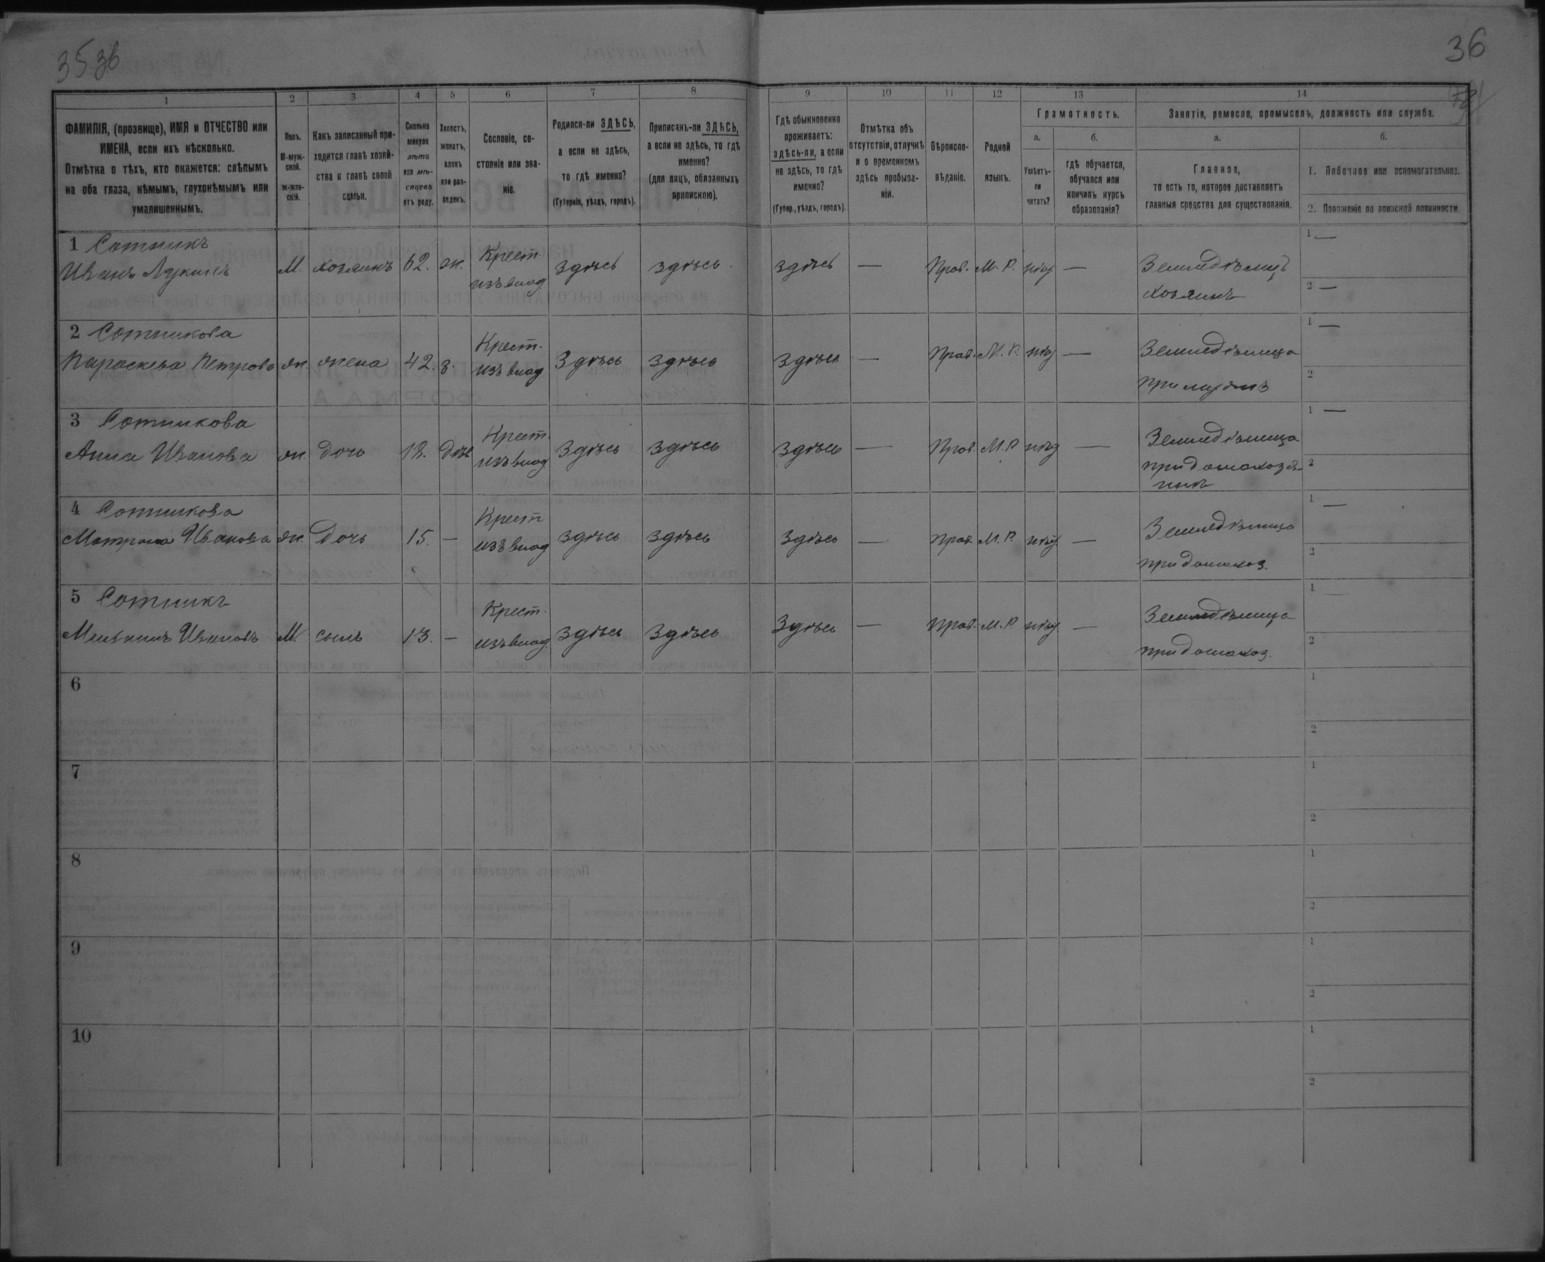 35 36
36
1 2 3 4 5 6 7 8 9 10 11 12 13 14
ФАМИЛІЯ, (прозвище), ИМЯ и ОТЧЕСТВО или ИМЕНА, если ихъ нѣсколько.
Отмѣтка о тѣхъ, кто окажется: слѣпымъ на оба глаза, нѣмымъ, глухонѣмымъ или умалишеннымъ.
Полъ.
М-мужской.
ж-женскій.
Какъ записанный приходится главѣ хозяйства и главѣ своей семьи.
Сколько минуло лѣтъ или мѣсяцевъ отъ роду.
Холостъ, женатъ, вдовъ или разведенъ.
Сословіе, состояніе или званіе.
Родился-ли ЗДѢСЬ, а если не здѣсь, то гдѣ именно?
(Губернія, уѣздъ, городъ).
Приписанъ-ли ЗДѢСЬ, а если не здѣсь, то гдѣ именно?
(для лицъ, обязанныхъ припискою).
Гдѣ обыкновенно проживаетъ: здѣсь-ли, а если не здѣсь, то гдѣ именно?
(Губер., уѣздъ, городъ).
Отмѣтка объ отсутствіи, отлучкѣ и о временномъ здѣсь пребываніи.
Вѣроисповѣданіе.
Родной языкъ.
Грамотность.
а.
Умѣетъ-ли читать?
б.
гдѣ обучается, обучался или кончилъ курсъ образованія?
Занятіе, ремесло, промыселъ, должность или служба.
а.
Главное,
то есть то, которое доставляетъ главныя средства для существованія.
б.
1. Побочное или вспомогательное.
2. Положеніе по воинской повинности.
1 Сотникъ
Иванъ Лукинъ М хозяинъ 62. ж. Крест. изъ влад здѣсь здѣсь здѣсь — Прав. М.Р. нѣт — Земледѣлецъ хозяинъ
1 —
2 —
2 Сотникова
Параскева Петрова ж. жена 42. з. Крест. изъ влад Здѣсь Здѣсь здѣсь — Прав. М.Р. нѣт — Земледѣлица при мужѣ
1 —
2
3 Сотникова
Анна Иванова ж. Дочь 18. Крест. изъ влад Здѣсь Здѣсь здѣсь — Прав. М.Р. нѣт — Земледѣлица при домохозяинѣ
1 —
2
4 Сотникова
Матрона Иванова ж. Дочь 15. — Крест изъ влад здѣсь здѣсь здѣсь — Прав. М.Р. нѣт — Земледѣлица при домохоз.
1 —
2
5 Сотникъ
Ивановъ М сынъ 13. — Крест. изъ влад здѣсь Здѣсь Здѣсь — Прав. М.Р. нѣт — при домохоз.
1 —
2
6
1
2
7
1
2
8
1
2
9
1
2
10
1
2